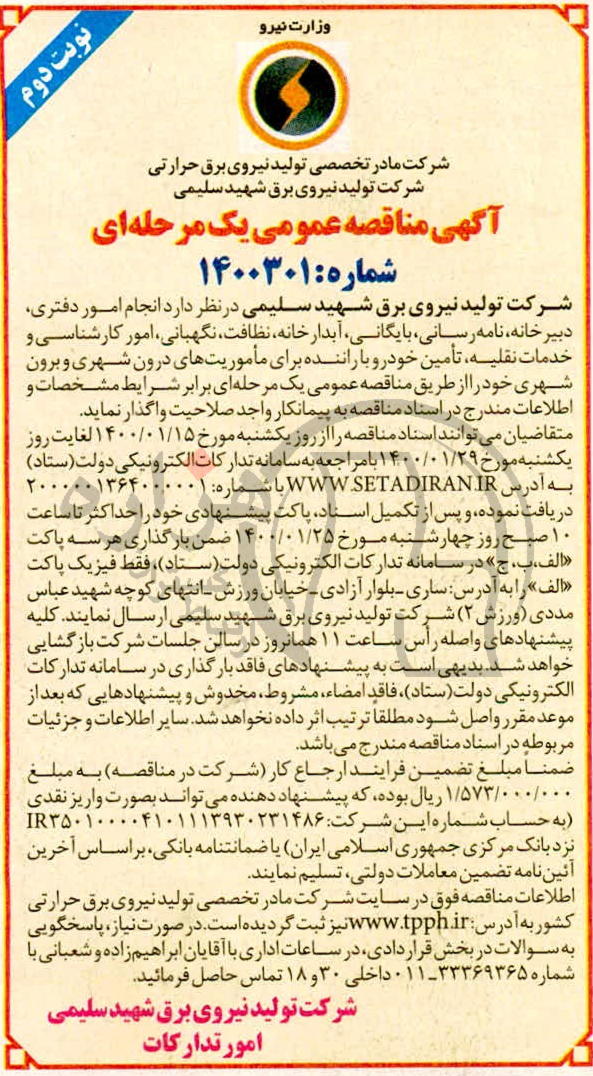 نوبت دوم
وزارت نیرو
شرکت مادر تخصصی تولید نیروی برق حرارتی
شرکت تولید نیروی برق شهید سلیمی
آگهی مناقصه عمومی یک مرحله‌ای
شماره: ۱۴۰۰۳۰۱
شرکت تولید نیروی برق شهید سلیمی در نظر دارد انجام امور دفتری،
دبیرخانه، نامه‌رسانی، بایگانی، آبدارخانه، نظافت، نگهبانی، امور کارشناسی و
خدمات نقلیه، تأمین خودرو با راننده برای مأموریت‌های درون شهری و برون
شهری خود را از طریق مناقصه عمومی یک مرحله‌ای برابر شرایط مشخصات و
اطلاعات مندرج در اسناد مناقصه به پیمانکار واجد صلاحیت واگذار نماید.
متقاضیان می‌توانند اسناد مناقصه را از روز یکشنبه مورخ ۱۴۰۰/۰۱/۱۵ لغایت روز
یکشنبه مورخ ۱۴۰۰/۰۱/۲۹ با مراجعه به سامانه تدارکات الکترونیکی دولت (ستاد)
به آدرس WWW.SETADIRAN.IR با شماره: ۲۰۰۰۰۰۱۳۶۴۰۰۰۰۰۱
دریافت نموده، و پس از تکمیل اسناد، پاکت پیشنهادی خود را حداکثر تا ساعت
۱۰ صبح روز چهارشنبه مورخ ۱۴۰۰/۰۱/۲۵ ضمن بارگذاری هر سه پاکت
«الف، ب، ج» در سامانه تدارکات الکترونیکی دولت (ستاد)، فقط فیزیک پاکت
«الف» را به آدرس: ساری ـ بلوار آزادی ـ خیابان ورزش ـ انتهای کوچه شهید عباس
مددی (ورزش ۲) شرکت تولید نیروی برق شهید سلیمی ارسال نمایند. کلیه
پیشنهادهای واصله رأس ساعت ۱۱ همانروز در سالن جلسات شرکت بازگشایی
خواهد شد. بدیهی است به پیشنهادهای فاقد بارگذاری در سامانه تدارکات
الکترونیکی دولت (ستاد)، فاقد امضاء، مشروط، مخدوش و پیشنهادهایی که بعد از
موعد مقرر واصل شود مطلقاً ترتیب اثر داده نخواهد شد. سایر اطلاعات و جزئیات
مربوطه در اسناد مناقصه مندرج می‌باشد.
ضمناً مبلغ تضمین فرایند ارجاع کار (شرکت در مناقصه) به مبلغ
۱/۵۷۳/۰۰۰/۰۰۰ ریال بوده، که پیشنهاد دهنده می‌تواند بصورت واریز نقدی
(به حساب شماره این شرکت: IR۳۵۰۱۰۰۰۰۴۱۰۱۱۱۳۹۳۰۲۳۱۴۸۶
نزد بانک مرکزی جمهوری اسلامی ایران) یا ضمانتنامه بانکی، براساس آخرین
آئین‌نامه تضمین معاملات دولتی، تسلیم نمایند.
اطلاعات مناقصه فوق در سایت شرکت مادر تخصصی تولید نیروی برق حرارتی
کشور به آدرس: www.tpph.ir نیز ثبت گردیده است. در صورت نیاز، پاسخگویی
به سوالات در بخش قراردادی، در ساعات اداری با آقایان ابراهیم‌زاده و شعبانی با
شماره ۳۳۳۶۹۳۶۵ـ۰۱۱ داخلی ۳۰ و ۱۸ تماس حاصل فرمائید.
شرکت تولید نیروی برق شهید سلیمی
امور تدارکات